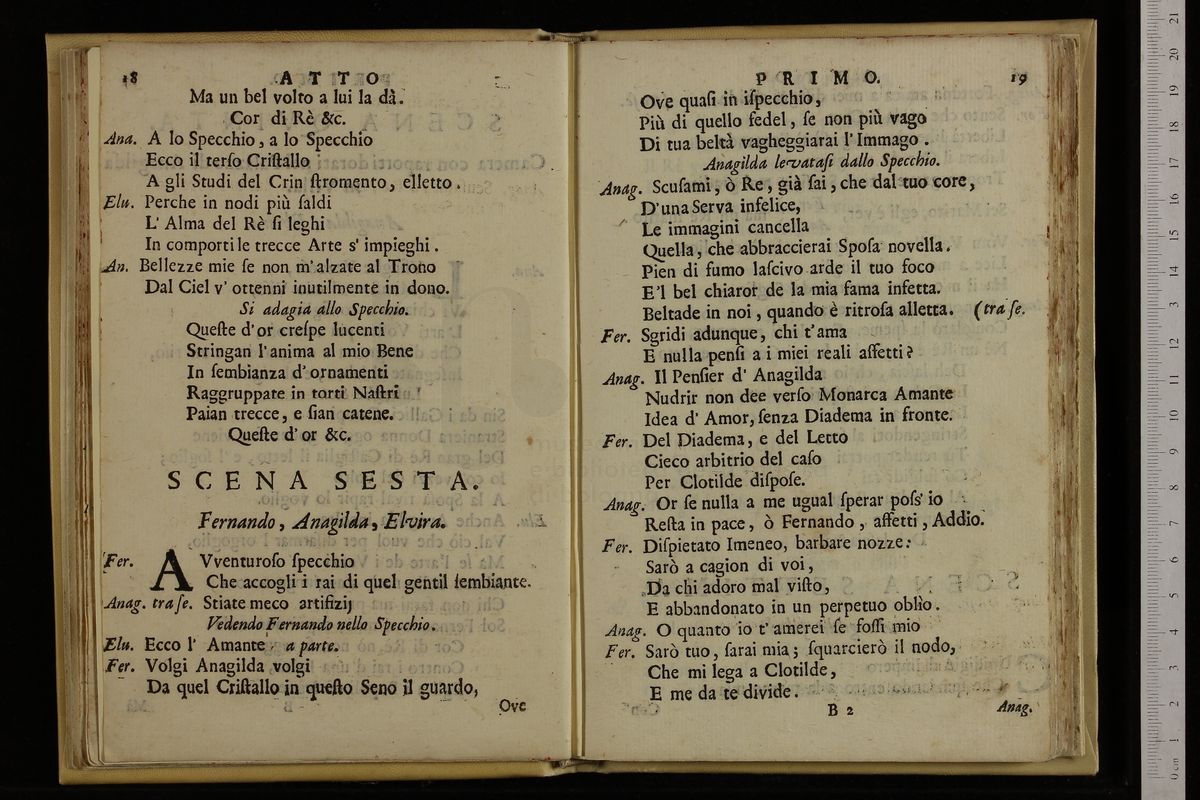 18 ATTO
Ma un bel volto a lui la dà.
Cor di Rè &c.
Ana. A lo Specchio, a lo Specchio
Ecco il terſo Criſtallo
A gli Studi del Crin ſtromento, elletto.
Elu. Perche in nodi più ſaldi
L' Alma del Rè ſi leghi
In comporti le trecce Arte s' impieghi.
An. Bellezze mie ſe non m'alzate al Trono
Dal Ciel v' ottenni inutilmente in dono.
Si adagia allo Specchio.
Queſte d'or creſpe lucenti
Stringan l'anima al mio Bene
In ſembianza d' ornamenti
Raggruppate in torti Naſtri
Paian trecce, e ſian catene.
Queſte d' or &c.
SCENA SESTA.
Fernando, Anagilda, Elvira.
Fer. AVventuroſo ſpecchio
Che accogli i rai di quel gentil ſembiante.
Anag. tra ſe. Stiate meco artifizij
Vedendo Fernando nello Specchio.
Elu. Ecco l' Amante. a parte.
Fer. Volgi Anagilda volgi
Da quel Criſtallo in queſto Seno il guardo,
Ove
PRIMO. 19
Ove quaſi in iſpecchio,
Più di quello fedel, ſe non più vago
Di tua beltà vagheggiarai l' Immago.
Anagilda levataſi dallo Specchio.
Anag. Scuſami, ò Re, già ſai, che dal tuo core,
D'una Serva infelice,
Le immagini cancella
Quella, che abbraccierai Spoſa novella.
Pien di fumo laſcivo arde il tuo foco
E'l bel chiaror de la mia fama infetta.
Beltade in noi, quando è ritroſa alletta. (tra ſe.
Fer. Sgridi adunque, chi t'ama
E nulla penſi a i miei reali affetti?
Anag. Il Penſier d' Anagilda
Nudrir non dee verſo Monarca Amante
Idea d' Amor, ſenza Diadema in fronte.
Fer. Del Diadema, e del Letto
Cieco arbitrio del caſo
Per Clotilde diſpoſe.
Anag. Or ſe nulla a me ugual ſperar poſs' io
Reſta in pace, ò Fernando, affetti, Addio.
Fer. Diſpietato Imeneo, barbare nozze:
Sarò a cagion di voi,
Da chi adoro mal viſto,
E abbandonato in un perpetuo oblio.
Anag. O quanto io t' amerei ſe foſſi mio
Fer. Sarò tuo, ſarai mia; ſquarcierò il nodo,
Che mi lega a Clotilde,
E me da te divide.
B 2 Anag.